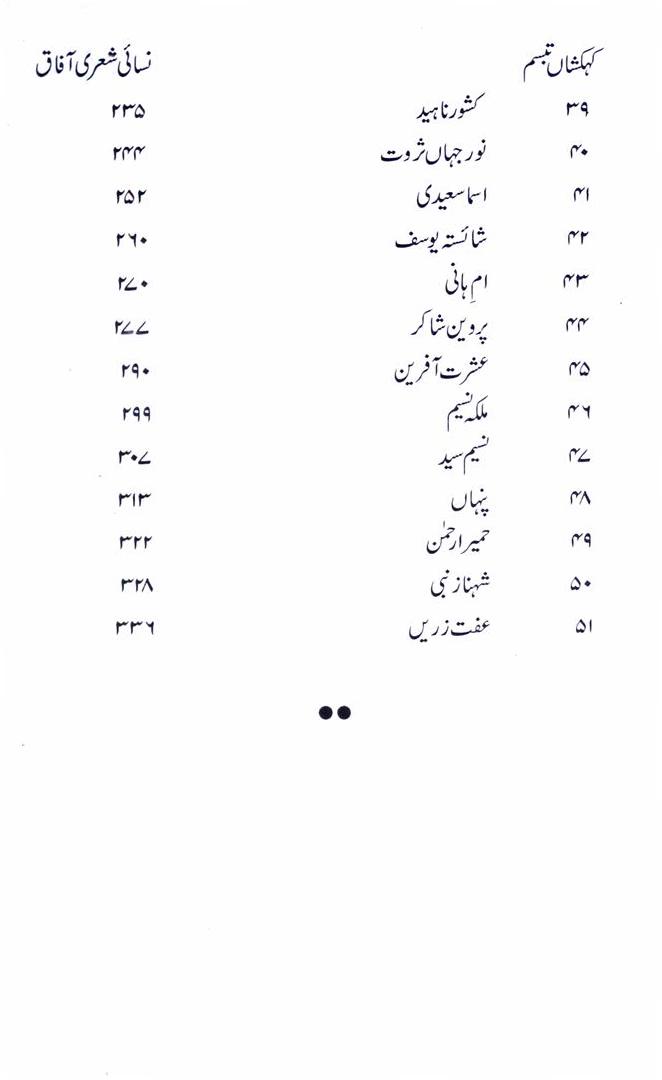 کہکشاں تبسم نسائی شعری آفاق
۳۹ کشور ناہید ۲۳۵
۴۰ نور جہاں ثروت ۲۴۴
۴۱ اسما سعیدی ۲۵۲
۴۲ شائستہ یوسف ۲۶۰
۴۳ امِ ہانی ۲۷۰
۴۴ پروین شاکر ۲۷۷
۴۵ عشرت آفرین ۲۹۰
۴۶ ملکہ نسیم ۲۹۹
۴۷ نسیم سید ۳۰۷
۴۸ پنہاں ۳۱۳
۴۹ حمیرا رحمٰن ۳۲۲
۵۰ شہناز نبی ۳۲۸
۵۱ عفت زریں ۳۳۶
●●